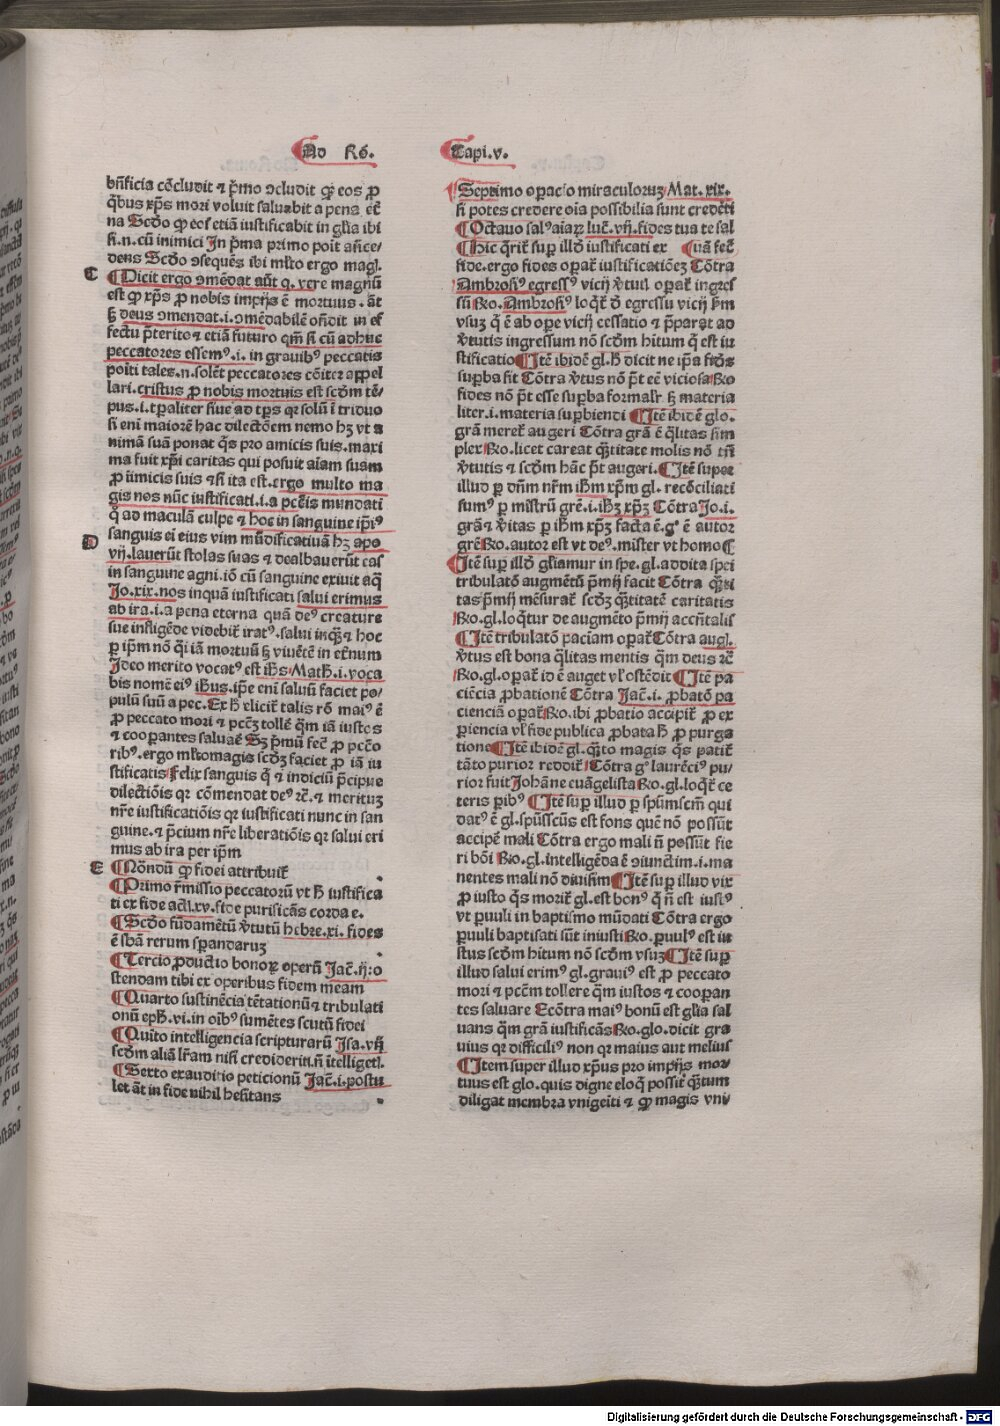 Ad Ro.
Capi.v.
bn̄ficia cōcludit ⁊ p̄mo ↄcludit qꝫ eos ꝓ
qͥbus xp̄s mori voluit saluabit a pena et̄
na Scd̓o ꝙ eos etiā iustificabit in gl̓ia ibi
si.n.cū inimici In p̄ma primo poīt an̄ce⸗
dens Scd̓o ↄsequēs ibi ml̓to ergo magꝭ.
C
Dicit ergo ↄmēdat aūt qꝛ. vere magnū
est ꝙ xp̄s ꝓ nobis impijs ē mortuus. āt
ꝫ deus ↄmendat.i.ↄmēdabilē on̄dit in ef
fectu p̄terito ⁊ etiā futuro qm̄ si cū adhuc
peccatores essemꝰ.i. in grauibꝰ peccatis
positi tales.n.solēt peccatores cōiter appel
lari. cristus ꝓ nobis mortuus est scd̓m tē⸗
pus.i.tꝑaliter siue ad tp̄s qꝛ solū ī triduo
si eni maiorē hac dilectōem nemo hꝫ vt a
nimā suā ponat qͥs pro amicis suis. maxi
ma fuit xp̄i caritas qui posuit aīam suam
ꝓ īimicis suis ⁊ si ita est. ergo multo ma
gis nos nūc iustificati.i.a pctīs mundati
qͦ ad maculā culpe ⁊ hoc in sanguine ip̄iꝰ
D
sanguis ei eius vim mūdificatiuā hꝫ apo
vij. lauerūt stolas suas ⁊ dealbauerūt eas
in sanguine agni. iō cū sanguine exiuit aq̄
Jo.xix. nos inquā iustificati salui erimus
ab ira.i.a pena eterna quā deꝰ creature
sue infligēde videbit̄ iratꝰ. salui inqͣꝫ ⁊ hoc
ꝑ ip̄m nō qͥ iā mortuū ꝫ viuētē in et̄num
Ideo merito vocatꝰ est ih̄s Math.i. voca
bis nomē eiꝰ ih̄us. ip̄e eni saluū faciet po⸗
pulū suū a pec. Ex h̄ elicit̄ talis rō maiꝰ ē
ꝓ peccato mori ⁊ pctꝫ tollē qm̄ iā iustos
⁊ cooperantes saluaē Sꝫ p̄mū fec̄ ꝓ pctō
ribꝰ. ergo ml̓tomagis scd̓ꝫ faciet ꝓ iā iu
stificatis Felix sanguis qͥ ⁊ indiciū p̄cipue
dilectiōis qꝛ cōmendat deꝰ ⁊c̄. ⁊ merituꝫ
nr̄e iustificatiōis qꝛ iustificati nunc in san
guine. ⁊ p̄cium nr̄e liberatiōis qꝛ salui eri
mus ab ira per ip̄m
E
Nōndū ꝙ fidei attribuit̄
Primo r̄missio peccatorū vt h̄ iustifica
ti ex fide act̄.xv. fide purificās corda e.
Scd̓o fūdamētū v̓tutū hebre.xi. fides
ē sb̄a rerum sperandaruꝫ
Tercio ꝓductio bonoꝝ operū Jac̄.ij:o
stendam tibi ex operibus fidem meam
Quarto sustinēcia tētationū ⁊ tribulati
onū eph̄.vi. in oībꝰ sumētes scutū fidei
Quīto intelligencia scripturarū Isa.vij
scd̓m aliā lr̄am nisi credideritꝭ.n̄ ītelligetꝭ.
Sexto exauditio peticionū Jac̄.i.postu
let āt in fide nihil hesitans
Septimo oꝑacio miraculoruꝫ Mat.xix.
si potes credere oīa possibilia sunt credēti
Octauo salꝰ aīaꝝ luc̄.vij. fides tua te sal
Hic qͥrit̄ suꝑ illd̓ iustificati ex Cuā fec̄
fide. ergo fides oꝑat̄ iustificatiōeꝫ Cōtra
Ambrosiꝰ egressꝰ vicij v̓tutꝭ oꝑat̄ ingres
sū Ro. Ambrosiꝰ loqͥt̄ d̓ egressu vicij ꝑm̄
vsuꝫ qͥ ē ab ope vicij cessatio ⁊ p̄parat̄ ad
v̓tutis ingressum nō scd̓m hitum qͥ est iu
stificatio Itē ibidē gl.h̄ dicit ne ip̄a fides
suꝑba sit Cōtra v̓tus nō pt̄ eē viciosa Ro
fides nō pt̄ esse suꝑba formalr̄ ꝫ materia
liter.i. materia suꝑbiendi Itē ibidē glo.
grām meret̄ augeri Cōtra grā ē qͣlitas sim
plex Ro. licet careat qͣntitate molis nō tn̄
v̓tutis ⁊ scd̓m hāc pt̄ augeri. Itē super
illud ꝑ dn̄m nr̄m ih̄m xp̄m gl. recōciliati
sumꝰ ꝑ mīstrū gr̄e.i.ih̄ꝫ xp̄ꝫ Cōtra Jo.i.
grā ⁊ v̓itas ꝑ ih̄m xp̄ꝫ facta ē.gͦ ē autor
gr̄e Ro. autor est vt deꝰ. mīster vt homo
Itē suꝑ illd̓ gl̓iamur in spe. gl. addita spei
tribulatō augmētū p̄mij facit Cōtra qͣnti
tas p̄mij mēsurat̄ scd̓ꝫ qͣntitatē caritatis
Ro. gl. loqͥtur de augmēto p̄mij accn̄talis
Itē tribulatō paciam oꝑat̄ Cōtra augꝭ.
v̓tus est bona qͣlitas mentis qm̄ deus ⁊c̄
Ro. gl. oꝑat̄ id ē auget vl̓ ostēdit Itē pa
ciēcia ꝓbationē Cōtra Jac̄.i. ꝓbatō pa
cienciā oꝑat̄ Ro. ibi ꝓbatio accipit̄ ꝓ ex
ꝑiencia vl̓ fide publica ꝓbata h̄ ꝓ purga
tione Itē ibidē gl. qͣnto magis qͥs patit̄
tāto purior reddit̄ Cōtra gͦ laurēciꝰ pu⸗
rior fuit Johāne euāgelista Ro.gl. loqͥt̄ ce
teris paribꝰ Itē suꝑ illud ꝑ sp̄umscm̄ qui
datꝰ ē gl. sp̄ūsscūs est fons quē nō possūt
accipē mali Cōtra ergo mali n̄ possūt fie
ri bōi Ro. gl. intelligēda ē ↄiunctim.i.ma
nentes mali nō diuisim Itē suꝑ illud vix
ꝓ iusto qͥs morit̄ gl. est bonꝰ qͥ n̄ est iustꝰ
vt ꝑuuli in baptismo mūdati Cōtra ergo
ꝑuuli baptisati sūt iniusti Ro. ꝑuulꝰ est iu
stus scd̓m hitum nō scd̓m vsuꝫ Itē suꝑ
illud salui erimꝰ gl. grauiꝰ est ꝓ peccato
mori ⁊ pctm̄ tollere qm̄ iustos ⁊ cooperan
tes saluare Ecōtra maiꝰ bonū est gl̓ia sal
uans qm̄ grā iustificās Ro. glo. dicit gra
uius qꝛ difficiliꝰ non qꝛ maius aut melius
Item super illud xp̄us pro impijs mor⸗
tuus est glo. quis digne eloqͥ possit qͣntum
diligat membra vnigeīti ⁊ ꝙ magis vni⸗
Digitalisierung gefördert durch die Deutsche Forschungsgemeinschaft - DFG